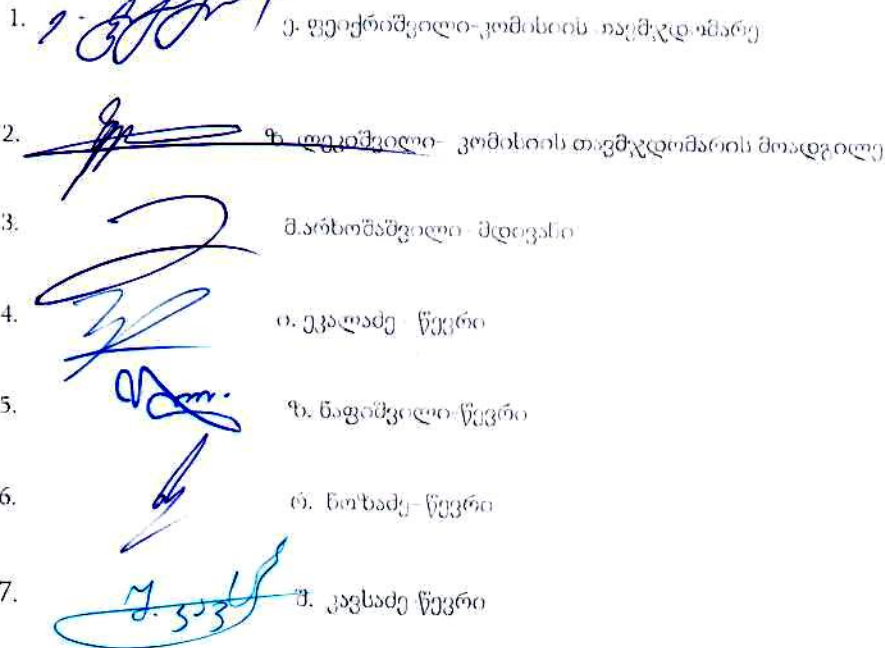 1. ე. ფეიქრიშვილი-კომისიის თავმჯდომარე
2. ზ. ლეკიშვილი- კომისიის თავმჯდომარის მოადგილე
3. მ.არხოშაშვილი- მდივანი
4. ი. ეკალაძე - წევრი
5. ზ. ნაფიშვილი-წევრი
6. რ. ნოზაძე-წევრი
7. შ. კავსაძე-წევრი